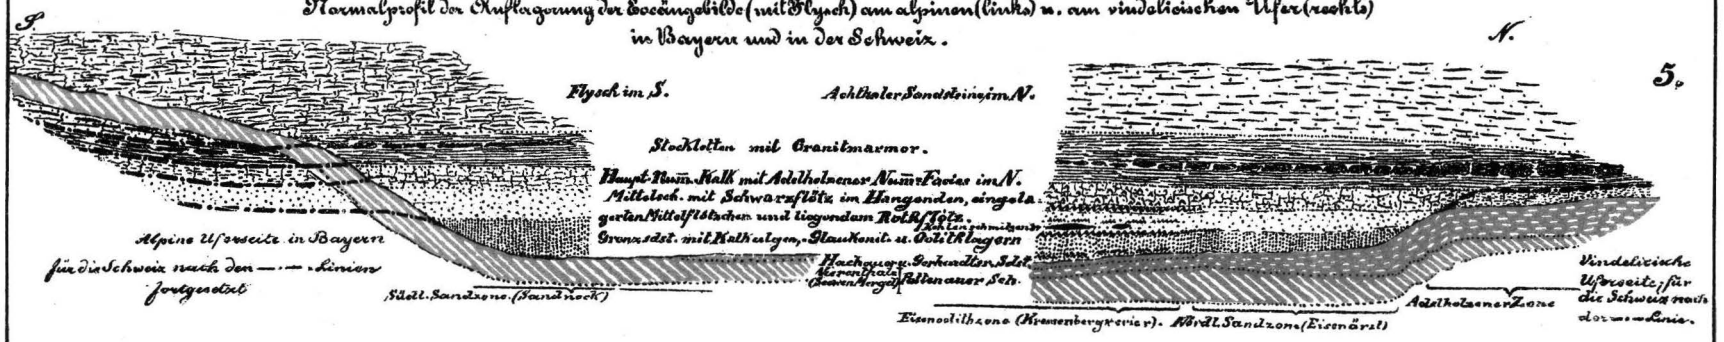 Normalprofil der Auflagerung der Eocängebilde (mit Flysch) am alpinen (links) u. am vindelicischen Ufer (rechts)
in Bayern und in der Schweiz.
S.
N.
5.
Flysch im S.
Achthaler Sandstein im N.
Stockletten mit Granitmarmor.
Haupt-Num. Kalk mit Adelholzener Num. Facies im N.
Mittelsch. mit Schwarzflötz im Hangenden, eingela-
gerten Mittelflötzchen und liegendem Rothflötz.
Kohlenschmitzen
Grenzsdst. mit Kalkeulgen, Glaukonit- u. Oolithlagern
Hachauer u. Gerhardten Sdst.
Pattenauer Sch.
Alpine Uferseite in Bayern
für die Schweiz nach den —·—·— Linien
fortgesetzt
Südl. Sandzone (Sandnock)
Eisenoolithzone (Kressenbergrevier).
Nördl. Sandzone (Eisenärzt)
Adelholzener Zone
Vindelicische
Uferseite, für
die Schweiz nach
der —·—·— Linie.